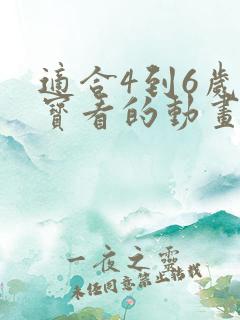 適合4到6歲
寶看的動畫
一夜之靈
未經同意禁止轉載